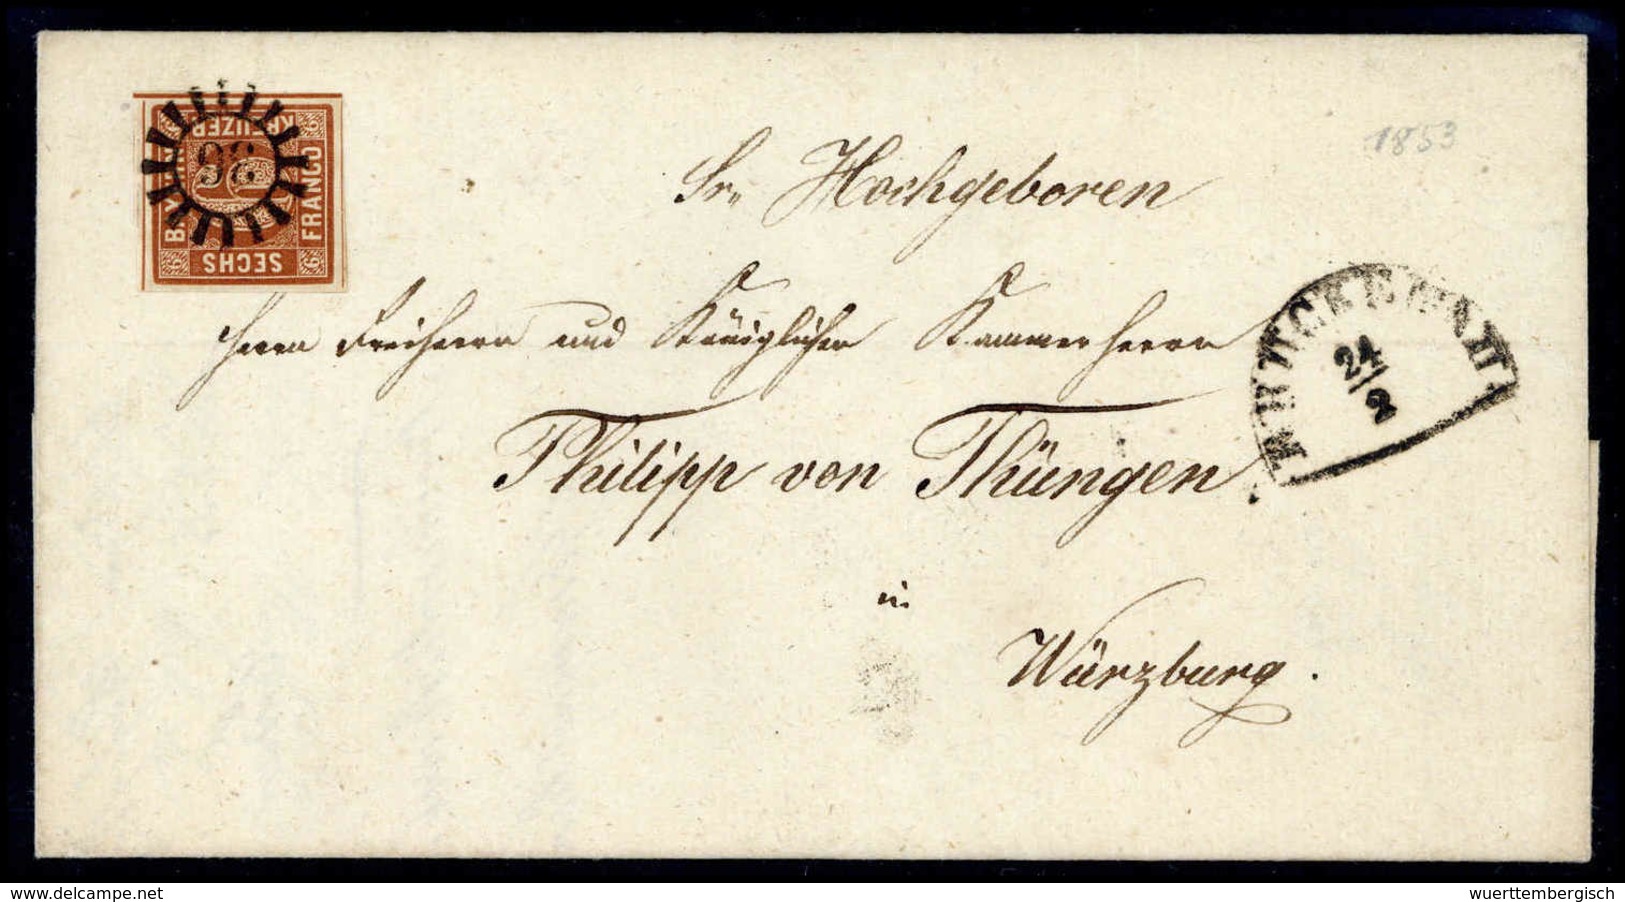 KREUZER
6
6
98
BAYERN
FRANCO
6
6
SECHS
1853
Sr. Hochgeboren
Herrn Freiherrn und Königlichen Kammerherrn
BRÜCKENAU
24/2
Philipp von Thüngen
in
Würzburg.
www.delcampe.net
wuerttembergisch